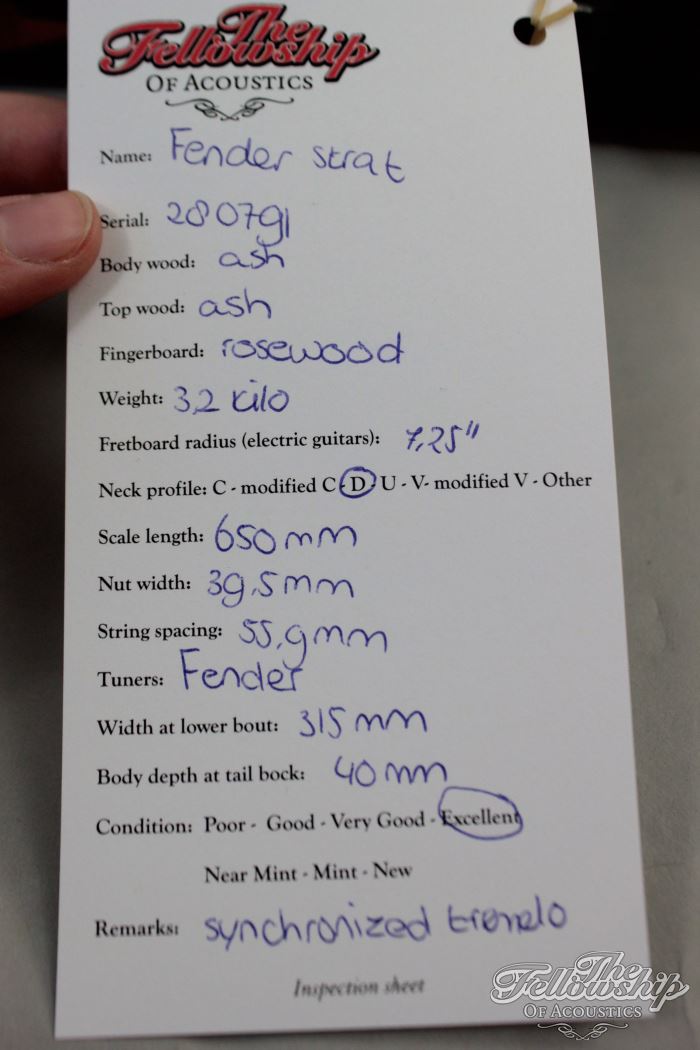 The
Fellowship
OF ACOUSTICS
Name: Fender strat
Serial: 280791
Body wood: ash
Top wood: ash
Fingerboard: rosewood
Weight: 3,2 kilo
Fretboard radius (electric guitars): 7,25"
Neck profile: C - modified C - D - U - V- modified V - Other
Scale length: 650 mm
Nut width: 39,5 mm
String spacing: 55,9 mm
Tuners: Fender
Width at lower bout: 315 mm
Body depth at tail bock: 40 mm
Condition: Poor - Good - Very Good - Excellent
Near Mint - Mint - New
Remarks: synchronized tremelo
Inspection sheet
The
Fellowship
OF ACOUSTICS